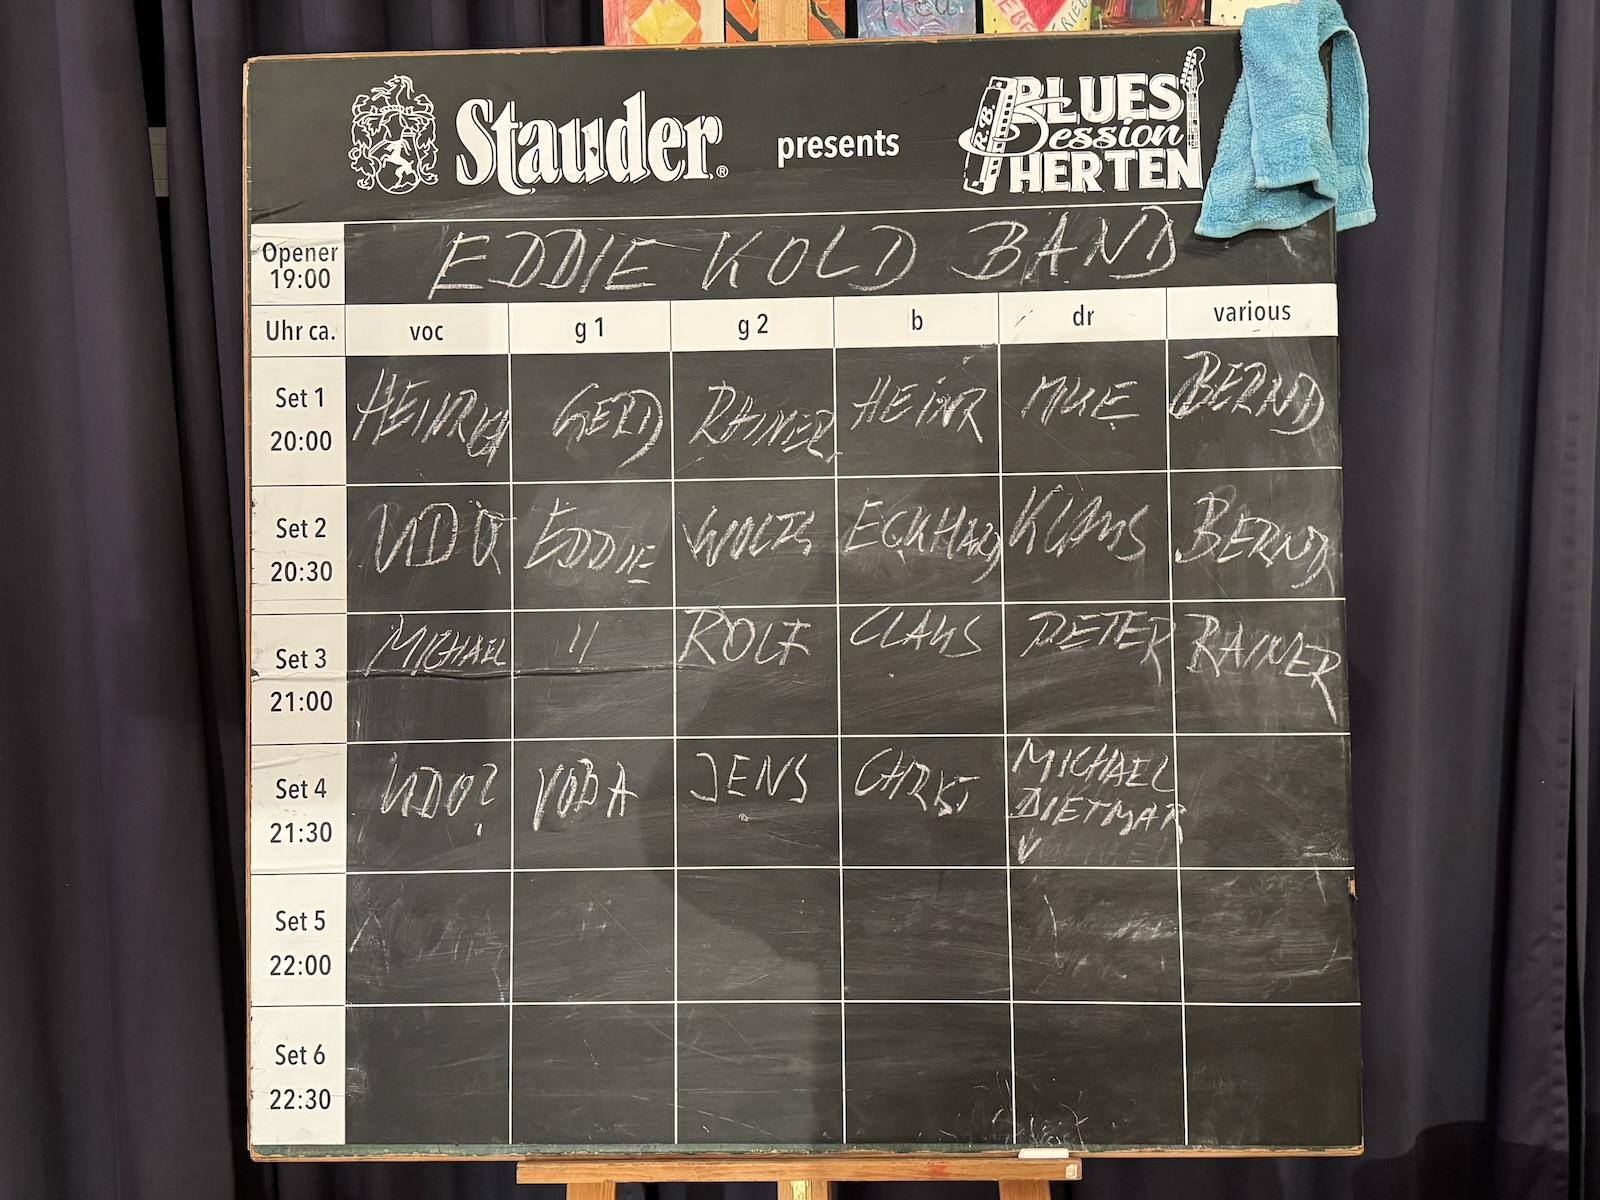 Stauder® presents BLUES Session HERTEN
R.B.
Opener 19:00 EDDIE KOLD BAND
Uhr ca. voc g 1 g 2 b dr various
Set 1 20:00 HEINRICH GERD RAINER HEINR MIKE BERND
Set 2 20:30 UDO EDDIE WOLFG ECKHARD KLAUS BERND
Set 3 21:00 MICHAEL " ROLF CLAUS PETER RAINER
Set 4 21:30 UDO? JENS CHRIST MICHAEL
DIETMAR
Set 5 22:00
Set 6 22:30